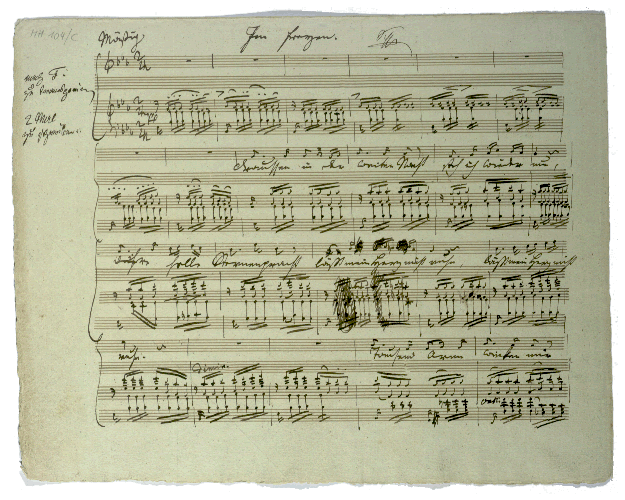 MH 104/c
Mäßig Im Freyen.
nach F.
zu transponieren
2 Mal
Draussen in der weiten Nacht steh ich wieder nun,
ihre helle Sternenpracht läßt mein Herz nicht ruhn, läßt mein Herz nicht
ruhn. tausend Arme winken mir